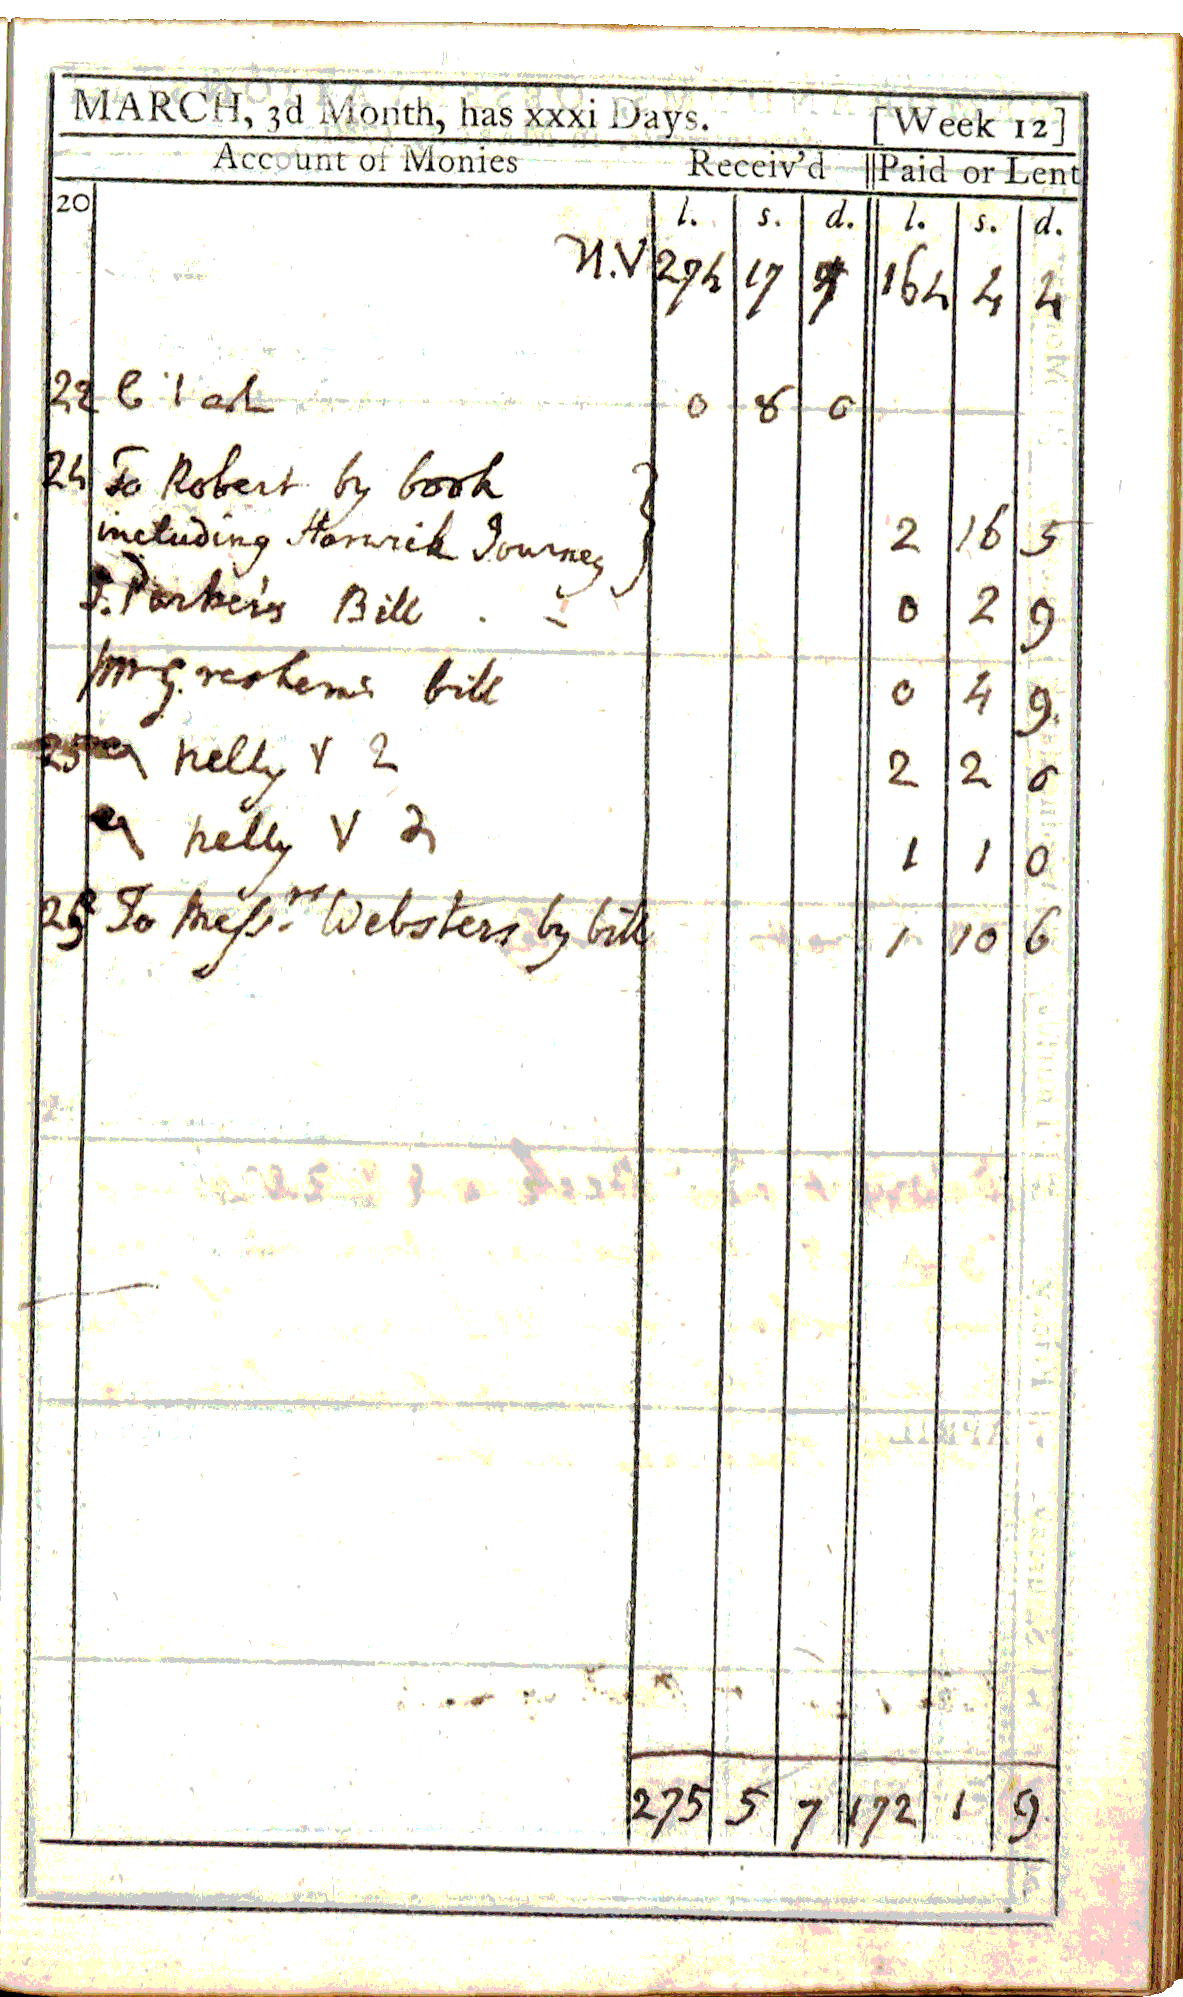 MARCH, 3d Month, has xxxi Days. [Week 12]
Account of Monies Receiv'd Paid or Lent
20 l. s. d. l. s. d.
274 17 7 164 4 4
22 0 8 0
24 To Robert by book
including Harwich Journey } 2 16 5
J. Parker's Bill . - 0 2 9
bill 0 4 9.
25 nelly V 2 2 2 0
nelly V 2 1 1 0
To Mess.rs Websters by bill 1 10 6
275 5 7 172 1 9